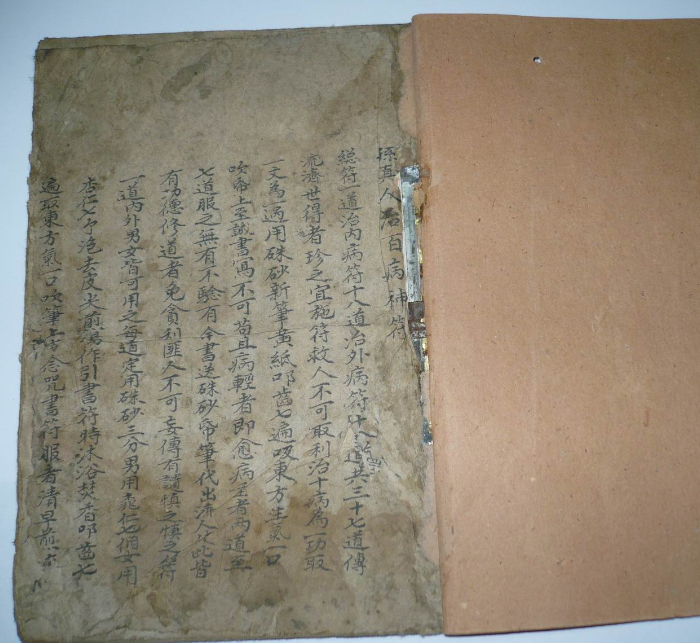 孫真人治百病神符
總符一道治内病符十八道治外病符十八道共三十七道傳
流濟世得者珍之宜施符救人不可取利治十病為一功取
一文為一過用硃砂新筆黃紙叩齒七遍吸東方生氣一口
吹帋上至誠書寫不可苟且病輕者即愈病至者兩道至
七道服之無有不驗有令書送硃砂帋筆代出流人此皆
有功德修道者免貪利匪人不可妄傳有諸慎之慎之符
一道内外男女皆可用之每道定用硃砂三分男用桃仁七個女用
杏仁七个泡去皮尖煎湯作引書符時沐浴焚香叩齒七
遍取東方氣一口吹筆上念咒書符服者清早